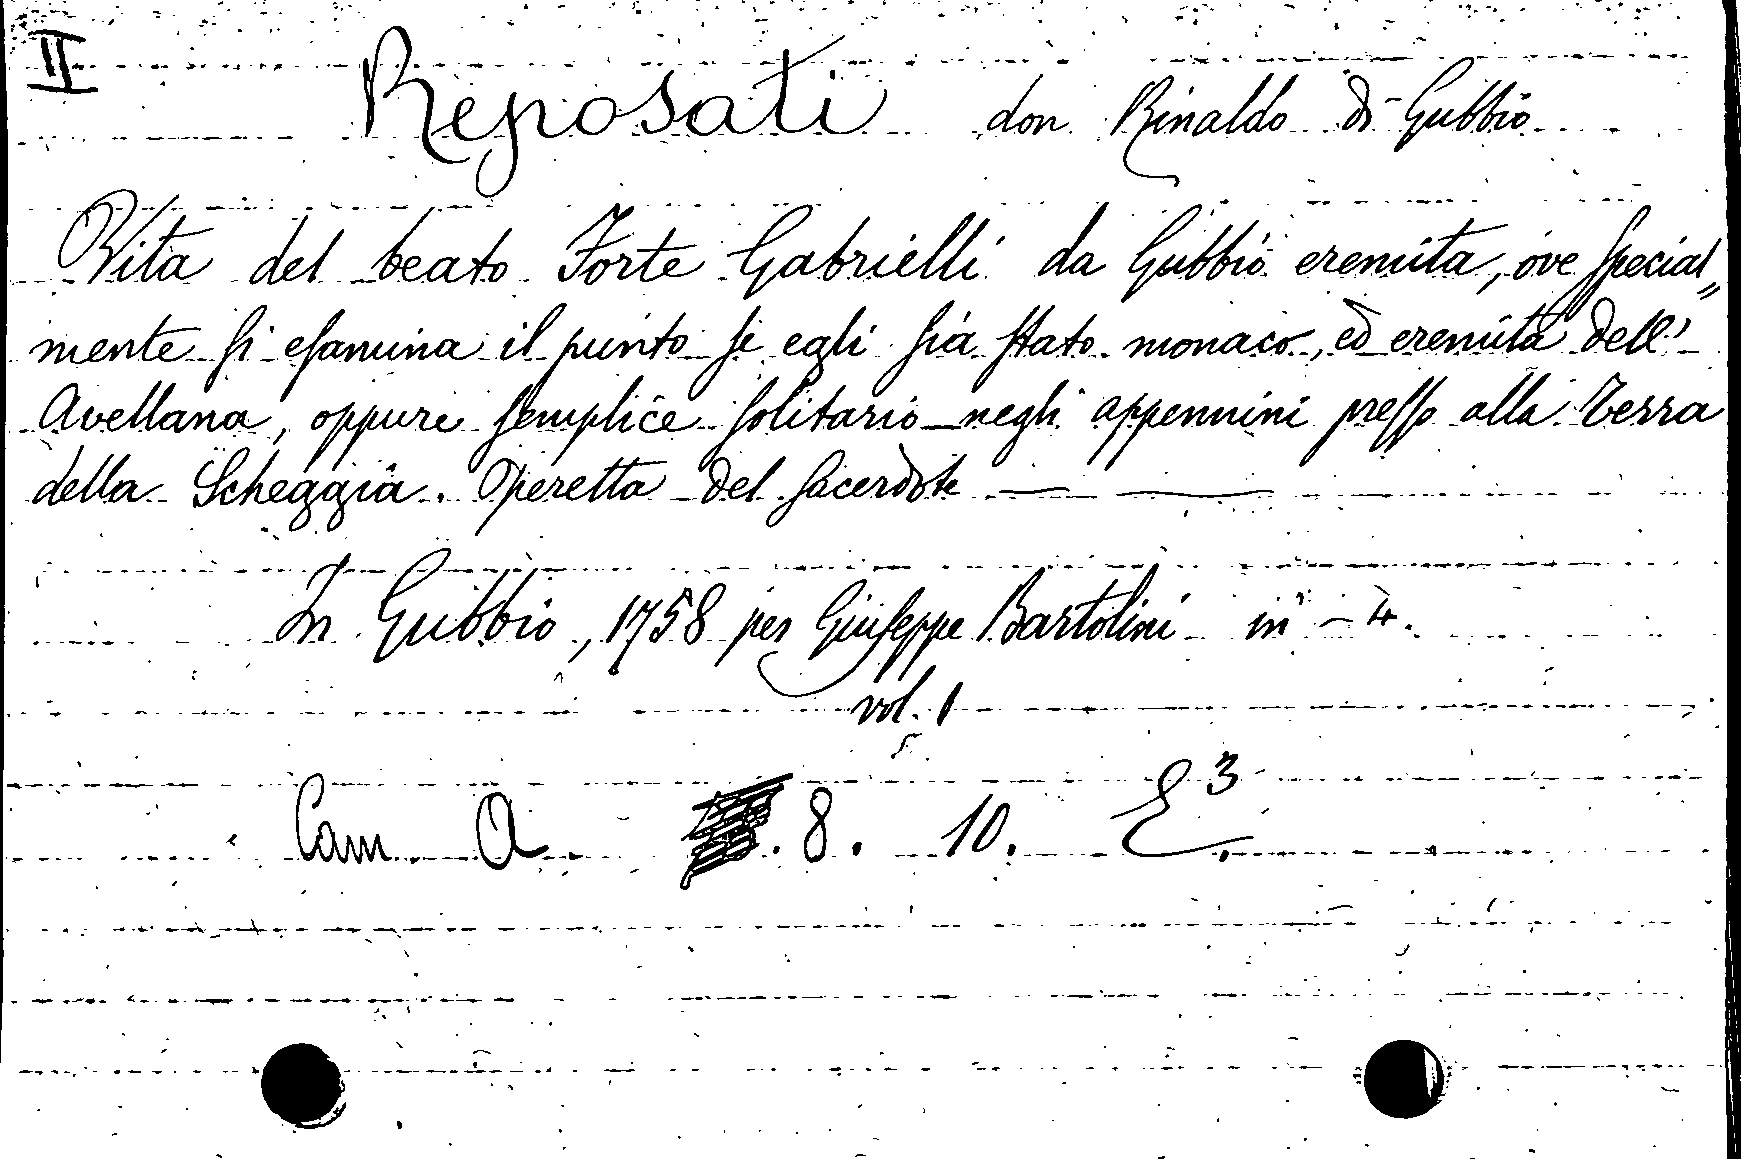 II
Reposati don Rinaldo di Gubbio
Vita del beato Forte Gabrielli da Gubbio eremita, ove special„
mente si esamina il punto se egli sia stato monaco, ed eremita dell'
Avellana, oppure semplice solitario negli appennini presso alla Terra
della Scheggia. Operetta del sacerdote — —
In Gubbio, 1758 per Giuseppe Bartolini in - 4.
vol. 1
Cam A . 8. 10. E³.